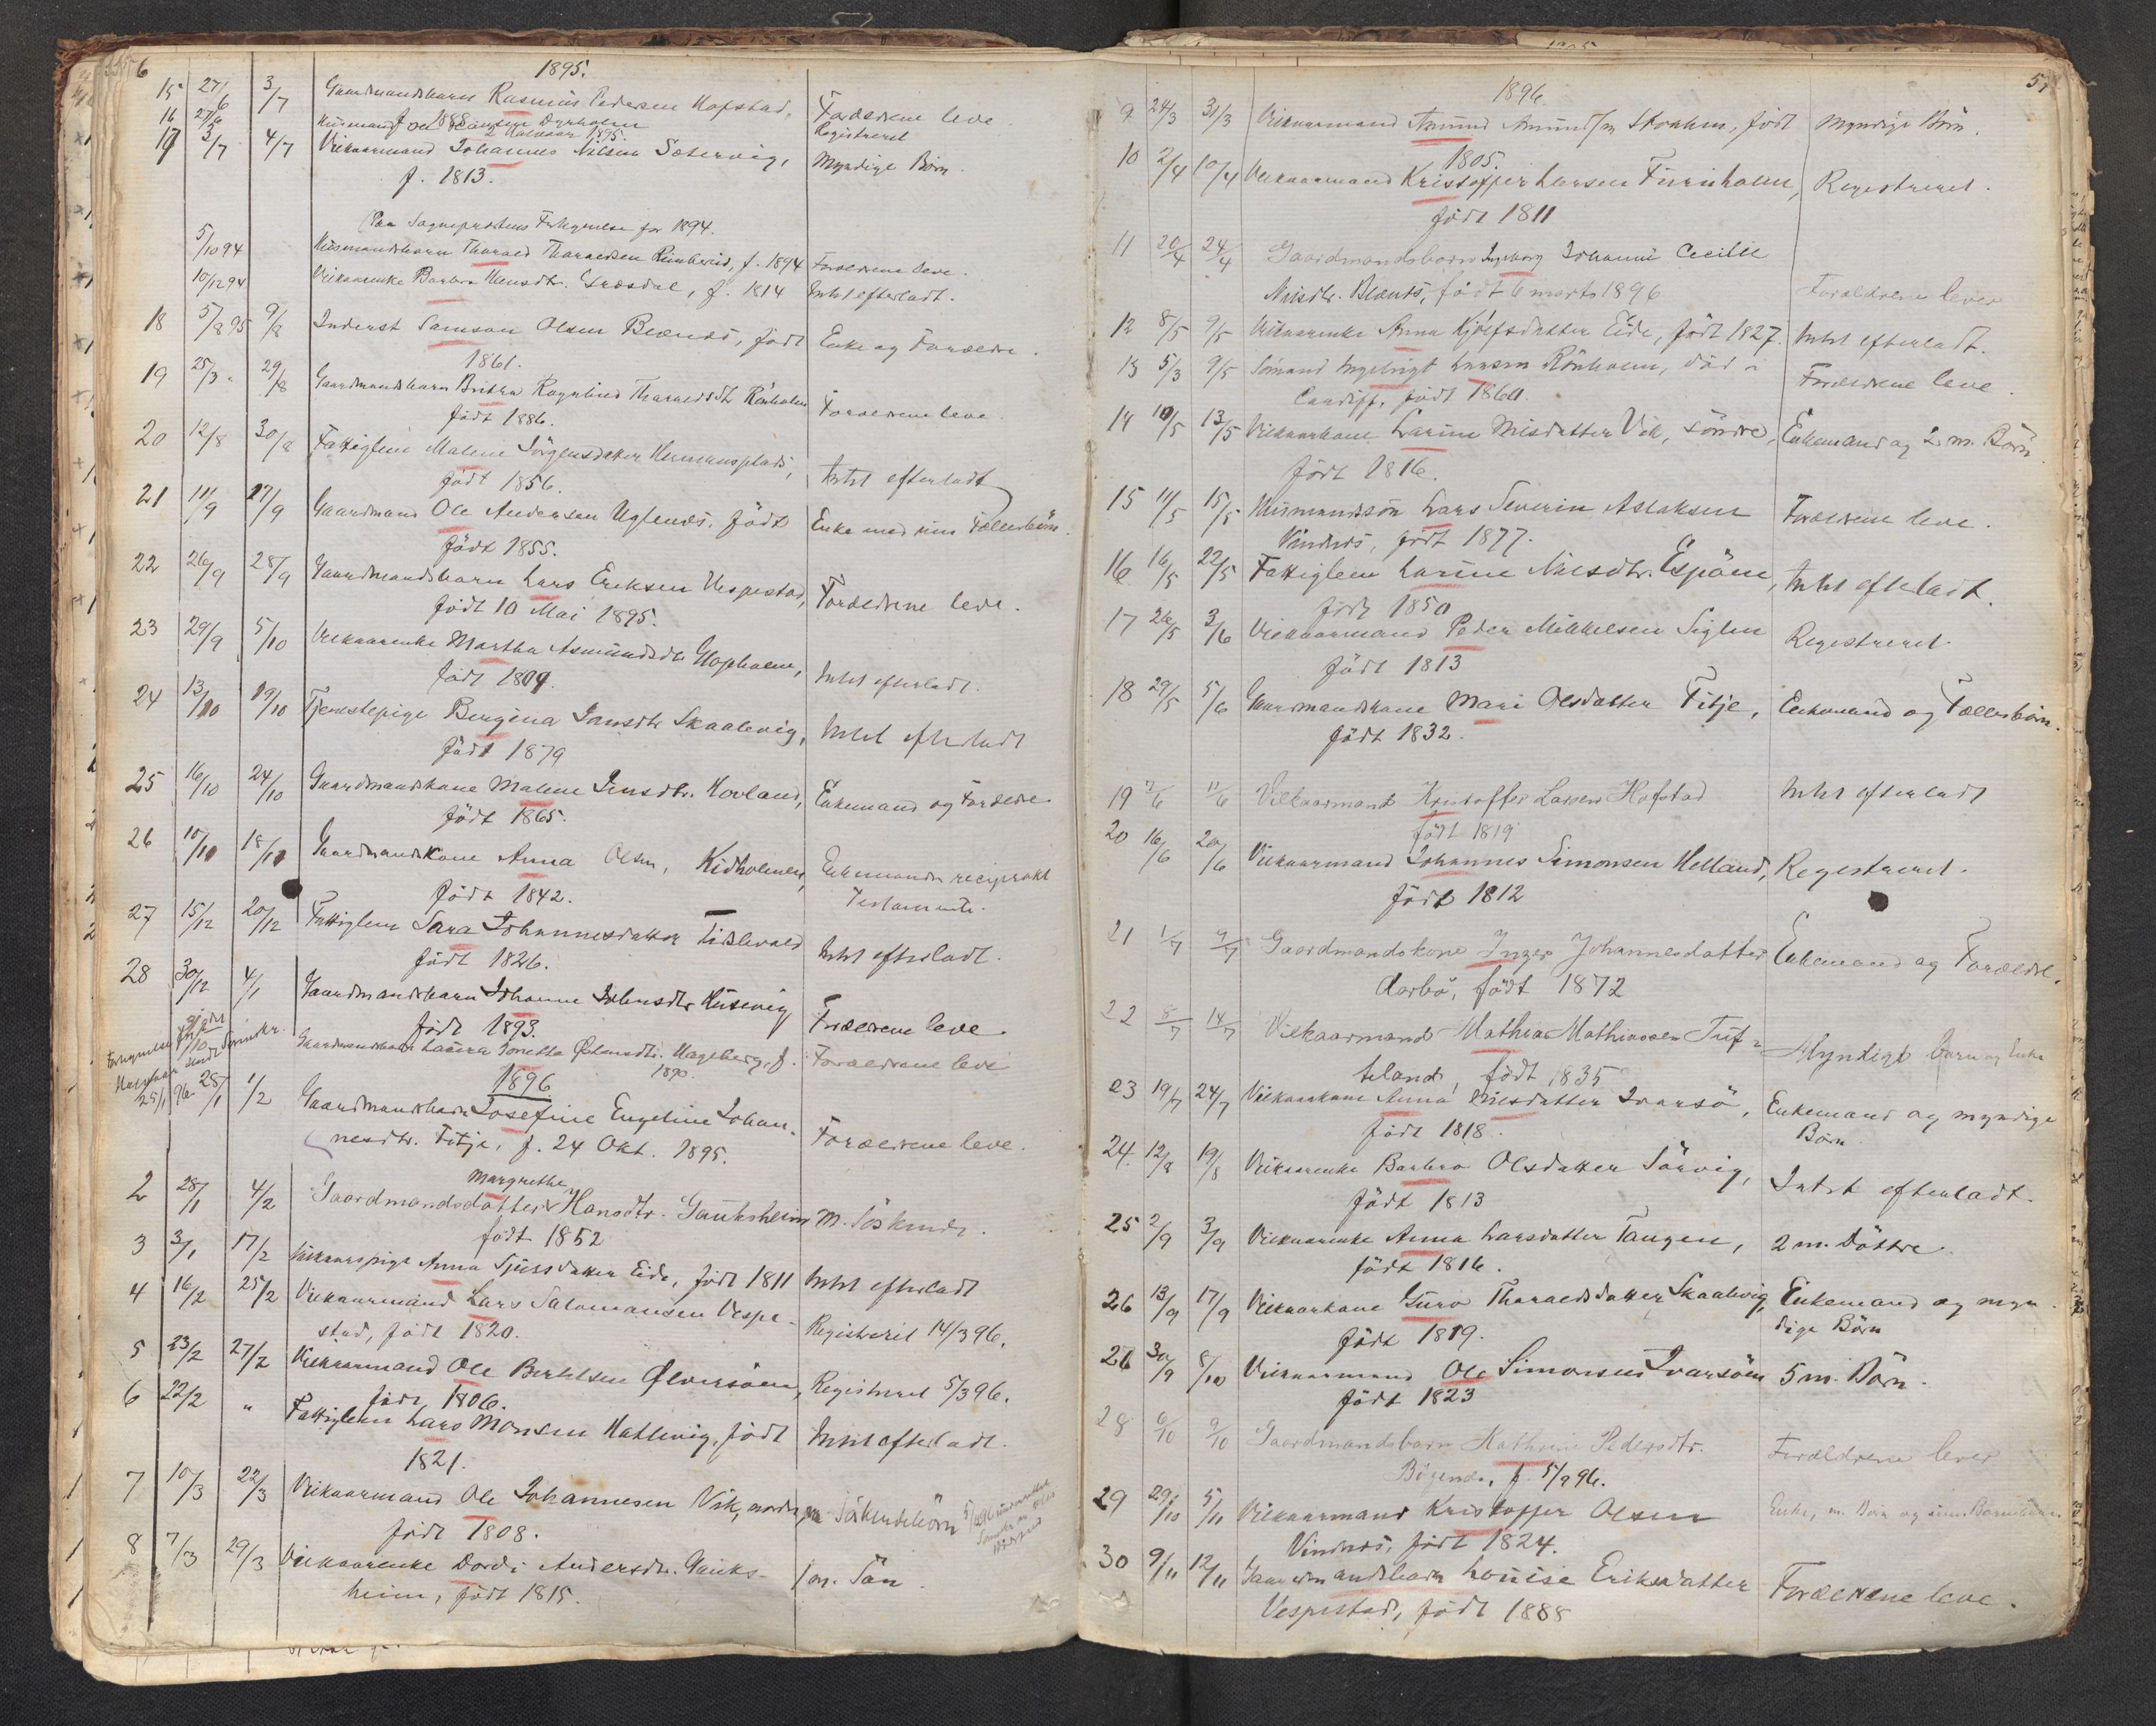 6
1895.
15 27/6 3/7 Gaardmandsbarn Rasmus Pedersen Hofstad, Forældrene leve
f. 1888
16 27/6 Husmand Dyrholm Registreret
1895.
17 3/7 4/7 Vilkaarmand Johannes Nilsen Sætervig, Myndige Børn.
f. 1813.
Paa Sogneprestens Fortegnelse for 1894.
5/10 94 Husmandsbarn Tharald Tharaldsen Rimbereid, f. 1894 Forældrene leve.
10/12 94 Vilkaarenke Barbra f. 1814 Intet efterladt.
18 5/8 95 9/8 Inderst Samson Olsen Bleænes, født Enke og Forældre.
1861.
19 25/3 " 29/8 Gaardmandsbarn Britha Ragnhild Tharaldsdtr Rönholm Forældrene leve.
født 1886.
20 12/8 30/8 Fattiglem Malene Jörgensdatter Hermansplads, Intet efterladt
født 1856.
21 11/9 27/9 Gaardmand Ole Andersen Uglenæs, født Enke med Fællesbörn.
født 1855.
22 26/9 28/9 Gaardmandsbarn Lars Eriksen Vespestad, Forældrene leve.
født 10 Mai 1895.
23 29/9 5/10 Vilkaarenke Martha Asmundsdtr Hopholm, Intet efterladt.
født 1809.
24 13/10 19/10 Tjenestepige Bergina Jansdtr Skaalevig, Intet efterladt
født 1879
25 16/10 24/10 Gaardmandskone Malene Jensdtr. Hovland, Enkemand og Forældre
født 1865.
26 10/11 18/11 Gaardmandskone Anna Olsen, Kidholmen, Enkemanden reciprokt
født 1842. Testamente.
27 15/12 20/12 Fattiglem Sara Johannesdatter Tislevold Intet efterladt.
født 1826.
28 30/12 4/1 Gaardmandsbarn Johanne Johnsdtr Husevig Forældrene leve.
født 1893.
Gaardmandsbarn Laura Jonetta Hageberg, f. Forældrene leve
1890
1896
25/1 96 28/1 1/2 Gaardmandsbarn Josefine Engeline Johan-
nesdtr. Fitje, f. 24 Okt. 1895. Forældrene leve.
Margrethe
2 28/1 4/2 Gaardmandsdatter Hansdtr. Gauksheim M. Söskende.
født 1852
3 3/1 17/2 Vilkaarspige Anna Sjursdatter Eide, født 1811 Intet efterladt
4 16/2 25/2 Vilkaarmand Lars Salomonsen Vespe-
stad, født 1820. Registreret 14/3 96.
5 23/2 27/2 Vilkaarmand Ole Berthelsen Ølversöen, Registreret 5/3 96.
født 1806.
6 22/2 " Fattiglem Lars Monsen Hatlevig, født Intet efterladt.
1821.
7 10/3 22/3 Vilkaarmand Ole Johannesen Vik, nordre, m. Söskendebörn
født 1808.
8 7/3 29/3 Vilkaarenke Dordi Andersdtr. Gauks- 1 m. Sön.
heim, født 1815.
57
1896
9 24/3 31/3 Vilkaarmand Amund Amunds. Stokken, født Myndige Börn.
1805.
10 2/4 10/4 Vilkaarmand Kristoffer Larsen Fureholm, Registreret.
født 1811
11 20/4 24/4 Gaardmandsbarn Ingeborg Johanne Cecilie
Nilsdtr. Blænæs, født 6 marts 1896 Forældrene lever
12 8/5 9/5 Vilkaarenke Anna Kjölfsdatter Eide, født 1827. Intet efterladt.
13 5/3 9/5 Sömand Ingebrigt Larsen Rönholm, död i Forældrene leve.
Cardiff, født 1860.
14 10/5 13/5 Vilkaarkone Larine Nilsdatter Vik, söndre, Enkemand og 2 m. Börn
født 1816.
15 11/5 15/5 Husmandssön Lars Severin Aslaksen Forældrene leve.
Vindnes, født 1877.
16 16/5 22/5 Fattiglem Larine Nilsdtr. Espöen, Intet efterladt.
født 1850
17 26/5 3/6 Vilkaarmand Peder Mikkelsen Siglen Registreret.
født 1813
18 29/5 5/6 Gaardmandskone Mari Olsdatter Fitje, Enkemand og Fællesbörn.
født 1832.
19 7/6 11/6 Vilkaarmand Kristoffer Larsen Hofstad Intet efterladt
født 1819
20 16/6 20/6 Vilkaarmand Johannes Simonsen Helland, Registreret.
født 1812
21 1/7 7/7 Gaardmandskone Inger Johannesdatter Enkemand og Forældre.
Aarbö, født 1872
22 8/7 14/7 Vilkaarmand Mathias Mathiassen Tuf-
teland, født 1835 Myndige børn og Enke
23 19/7 24/7 Vilkaarkone Anna Nilsdatter Ivarsö, Enkemand og myndige
født 1818. Börn
24. 12/8 19/8 Vilkaarenke Barbro Olsdatter Sörvig, Intet efterladt.
født 1813
25 2/9 3/9 Vilkaarenke Anna Larsdatter Tangen, 2 m. Döttre.
født 1816.
26 13/9 17/9 Vilkaarkone Guro Tharaldsdatter Skaalevig, Enkemand og myn-
født 1819. dige Börn
26 30/9 8/10 Vilkaarmand Ole Simonsen Ivarsöen 5 m. Börn.
født 1823
28 6/10 9/10 Gaardmandsbarn Kathrine Pedersdtr. Forældrene lever
f. 5/9 96.
29 29/10 5/11 Vilkaarmand Kristoffer Olsen Enke, m. Börn og
Vindnes, født 1824.
30 9/11 12/11 Gaardmandsbarn Louise Eriksdatter Forældrene leve.
Vespestad, født 1888